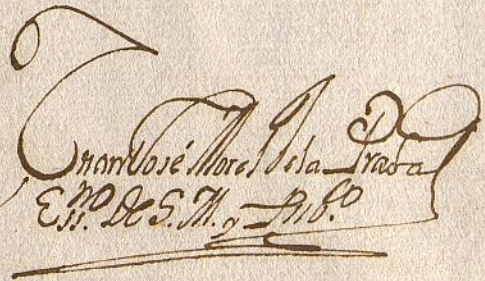 Juan José Morel de la Prada
Essno. De S. M. y Pubco.